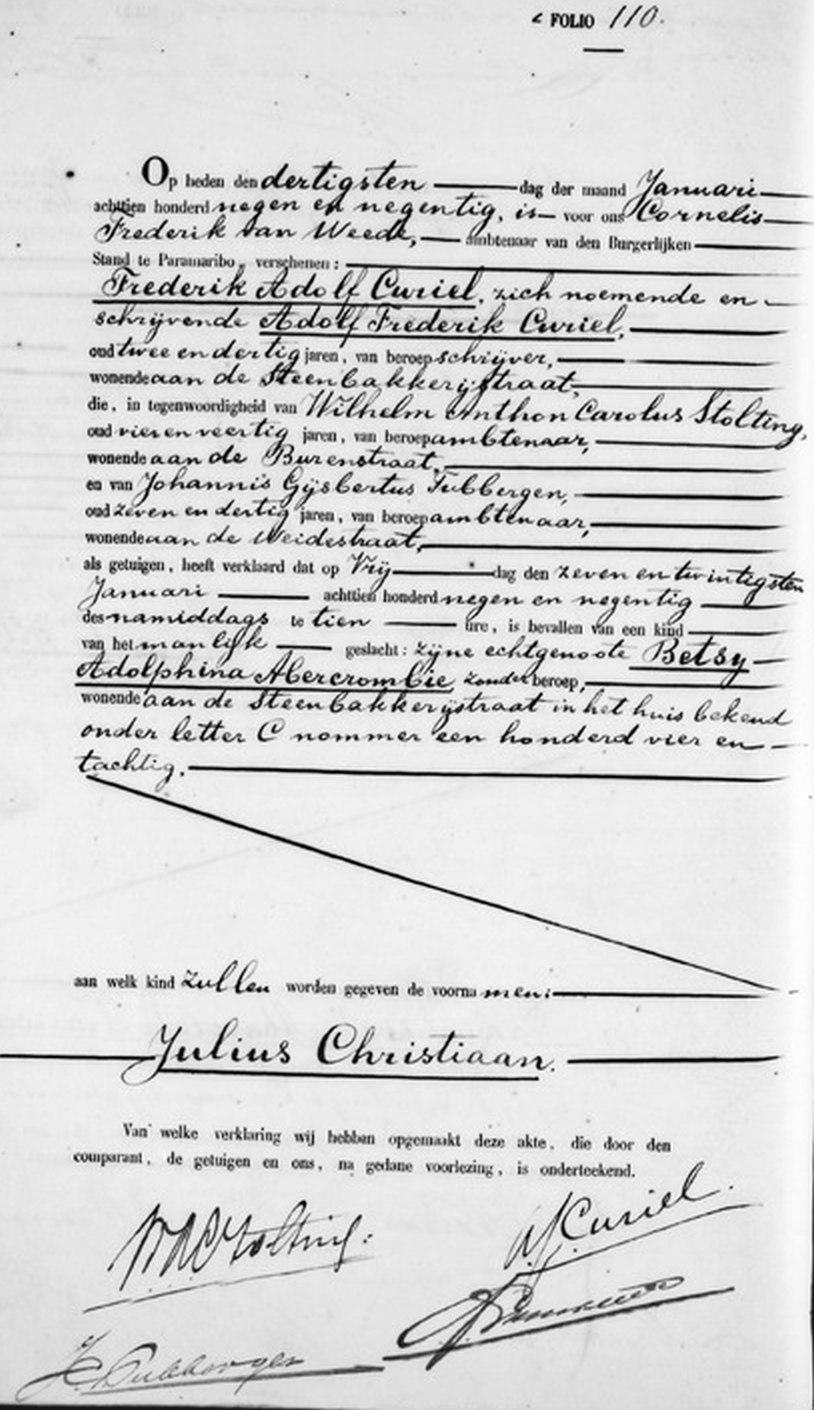 FOLIO 110.
Op heden den dertigsten dag der maand Januari
achttien honderd negen en negentig, is voor ons Cornelis
Frederik van Weede, ambtenaar van den Burgerlijken
Stand te Paramaribo, verschenen:
Frederik Adolf Curiel, zich noemende en
schrijvende Adolf Frederik Curiel,
oud twee en dertig jaren, van beroep schrijver,
wonende aan de Steenbakkerijstraat,
die, in tegenwoordigheid van Wilhelm Anthon Carolus Stolting,
oud vier en veertig jaren, van beroep ambtenaar,
wonende aan de Burenstraat,
en van Johannis Gijsbertus Tubbergen,
oud zeven en dertig jaren, van beroep ambtenaar,
wonende aan de Weidestraat,
als getuigen, heeft verklaard dat op Vrijdag den zeven en twintigsten
Januari achttien honderd negen en negentig
des namiddags te tien ure, is bevallen van een kind
van het manlijk geslacht: zijne echtgenoote Betsy
Adolphina Abercrombie, zonder beroep,
wonende aan de Steenbakkerijstraat in het huis bekend
onder letter C nommer een honderd vier en
tachtig,
aan welk kind zullen worden gegeven de voornamen:
Julius Christiaan.
Van welke verklaring wij hebben opgemaakt deze akte, die door den
comparant, de getuigen en ons, na gedane voorlezing, is onderteekend.
WAC Stolting. AfCuriel.